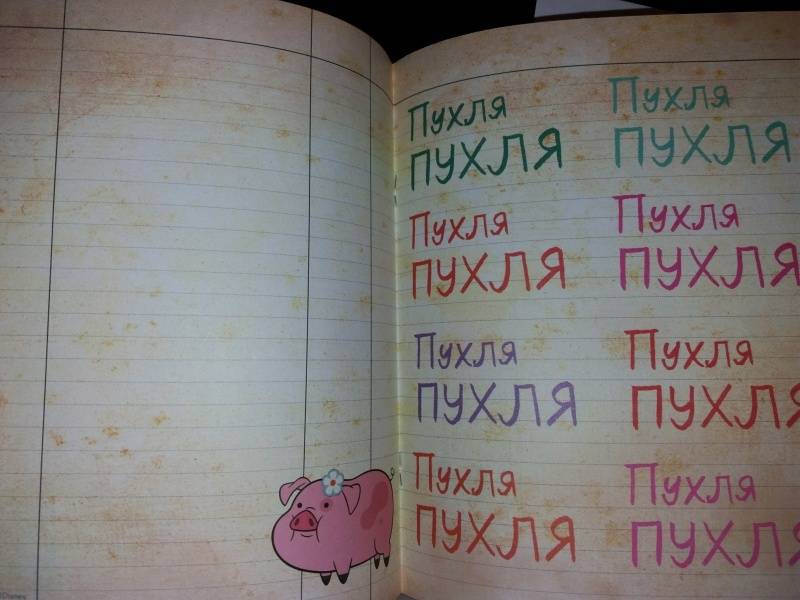 Пухля
ПУХЛЯ
Пухля
ПУХЛЯ
Пухля
ПУХЛЯ
Пухля
ПУХЛЯ
Пухля
ПУХЛЯ
Пухля
ПУХЛЯ
Пухля
ПУХЛЯ
Пухля
ПУХЛЯ
Disney